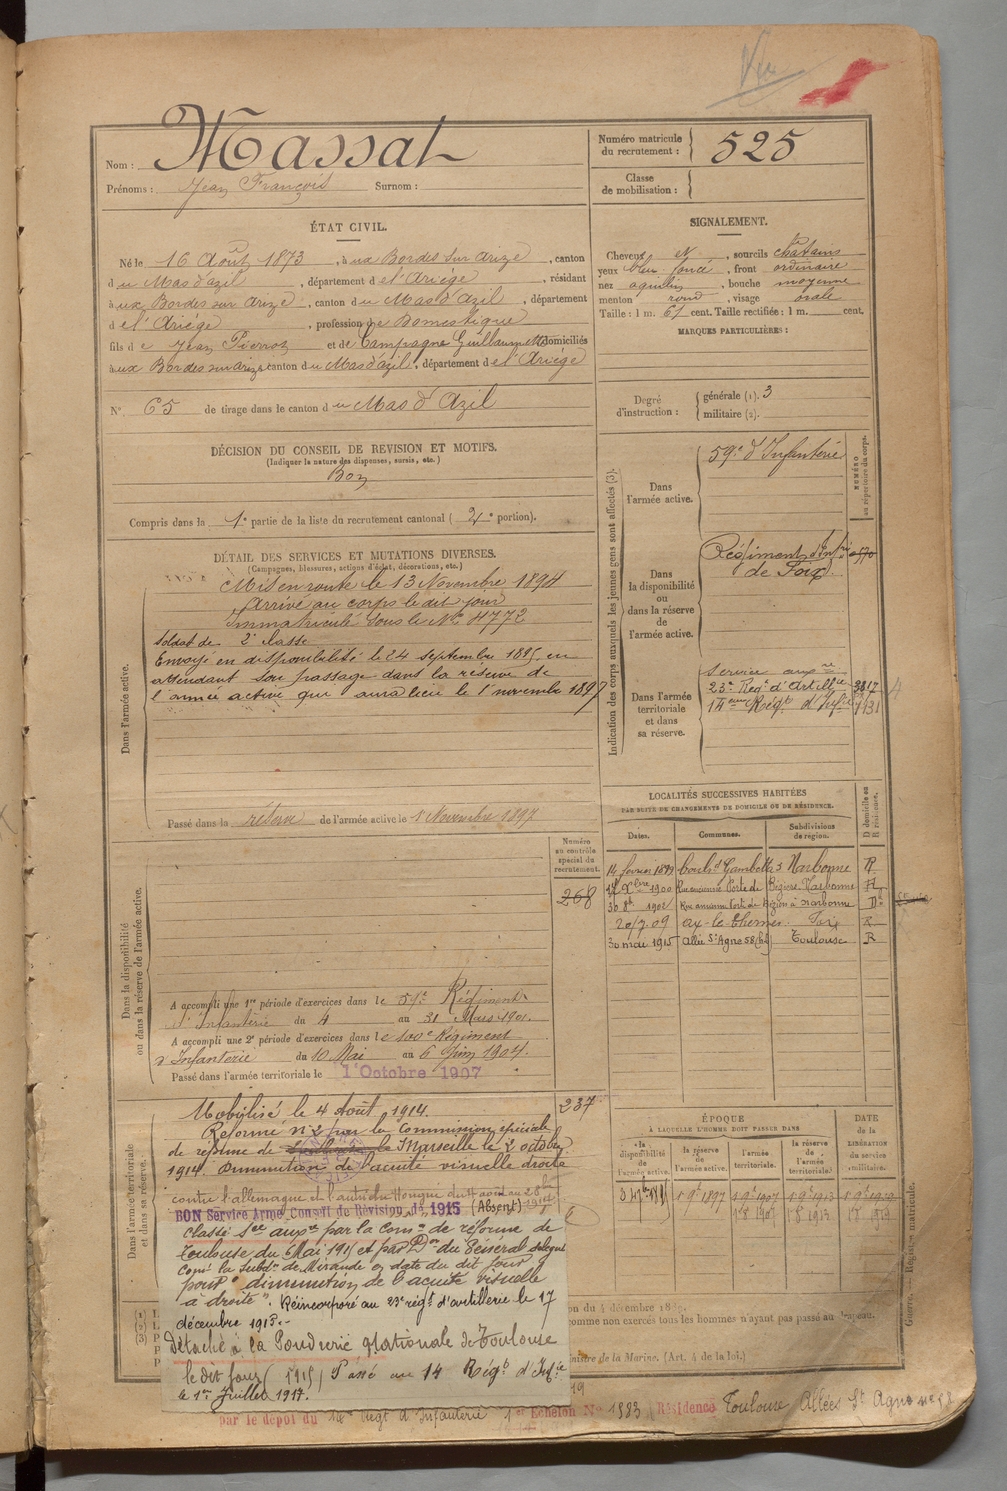 Vu
Nom : Massat
Prénoms : Jean François Surnom :
Numéro matricule du recrutement : 525
Classe de mobilisation :
ÉTAT CIVIL.
Né le 16 Août 1873, à ux Bordes sur Arize, canton
d u Mas d'azil, département d e l'Ariège, résidant
à ux Bordes sur Arize, canton d u Mas d'Azil, département
d e l'Ariége, profession de Domestique
fils d e Jean Pierre et de Campagne Guillaume domiciliés
à ux Bordes sur arize canton d u Mas d'azil, département d e l'Ariège
N° 65 de tirage dans le canton d u Mas d'Azil
SIGNALEMENT.
Cheveux et, sourcils châtains
yeux bleu foncé, front ordinaire
nez aquilin, bouche moyenne
menton rond, visage ovale
Taille : 1 m. 61 cent. Taille rectifiée : 1 m. cent.
MARQUES PARTICULIÈRES :
Degré d'instruction : générale (1). 3
militaire (2).
DÉCISION DU CONSEIL DE REVISION ET MOTIFS.
(Indiquer la nature des dispenses, sursis, etc.)
Bon
Compris dans la 1e partie de la liste du recrutement cantonal ( 2e portion).
DÉTAIL DES SERVICES ET MUTATIONS DIVERSES.
(Campagnes, blessures, actions d'éclat, décorations, etc.)
Dans l'armée active.
Mis en route le 13 Novembre 1894
Arrivé au corps le dit jour
Immatriculé sous le No 4772
Soldat de 2e classe
Envoyé en disponibilité le 24 septembre 1895 en
attendant son passage dans la réserve de
l'armée active qui aura lieu le 1er novembre 1897
Passé dans la réserve de l'armée active le 1er Novembre 1897
Indication des corps auxquels les jeunes gens sont affectés (3).
NUMÉRO au répertoire du corps.
Dans l'armée active.
59e d'Infanterie
Dans la disponibilité ou dans la réserve de l'armée active.
Régiment d'Infrie
de Foix
Dans l'armée territoriale et dans sa réserve.
Service auxre
23e Regt d'Artillie 3817
14eme Régt d'Infie
LOCALITÉS SUCCESSIVES HABITÉES
PAR SUITE DE CHANGEMENTS DE DOMICILE OU DE RÉSIDENCE.
Dates. Communes. Subdivisions de région. D domicile ou R résidence.
14 février 1899 Boulvd Gambetta 3 Narbonne R
Xbre 1900 Rue ancienne Porte de Béziers Narbonne R
30 8b 1902 Rue ancienne Porte de Béziers à Narbonne D
20/7 09 Ax-les-Thermes Foix R
30 mai 1915 Allée St Agne 58 Toulouse R
Numéro au contrôle spécial du recrutement.
268
Dans la disponibilité ou dans la réserve de l'armée active.
A accompli une 1re période d'exercices dans l e 59e Régiment
d'Infanterie du 4 au 31 Mars 1901.
A accompli une 2e période d'exercices dans l e 100e Régiment
d'Infanterie du 10 Mai au 6 Juin 1904.
Passé dans l'armée territoriale le 1er Octobre 1907
237
Dans l'armée territoriale et dans sa réserve.
Mobilisé le 4 Août 1914.
Reformé n°2 par la Commission spéciale
de reforme de Marseille le 2 octobre
1914. Diminution de l'acuité visuelle droite
contre l'allemagne et l'autriche Hongrie du 4 août au
BON Service Armé Conseil de Révision de 1915 (Absent)
Classé Sce auxre par la Comon de réforme de
Toulouse du 6 Mai 1915 et par Don du Général délégué
Comt la Subdon de Mirande en date du dit jour
pour "diminution de l'acuité visuelle
à droite". Réincorporé au 23e régt d'artillerie le 17
décembre 1915.
Détaché à la Poudrerie Nationale de Toulouse
le dit jour (1915) Passé au 14 Régt d'Infie
le 1er Juillet 1917.
ÉPOQUE
À LAQUELLE L'HOMME DOIT PASSER DANS
la disponibilité de l'armée active. la réserve de l'armée active. l'armée territoriale. la réserve de l'armée territoriale. DATE de la LIBÉRATION du service militaire.
1897 1907 1913 1919
Guerre. Registre matricule.
(1)
(2)
(3)
comme non exercés tous les hommes n'ayant pas passé au drapeau.
Ministre de la Marine. (Art. 4 de la loi.)
par le dépôt du 14e Regt d'Infanterie 1er Echelon N° 1983 Résidence Toulouse Allées St Agne n° 58